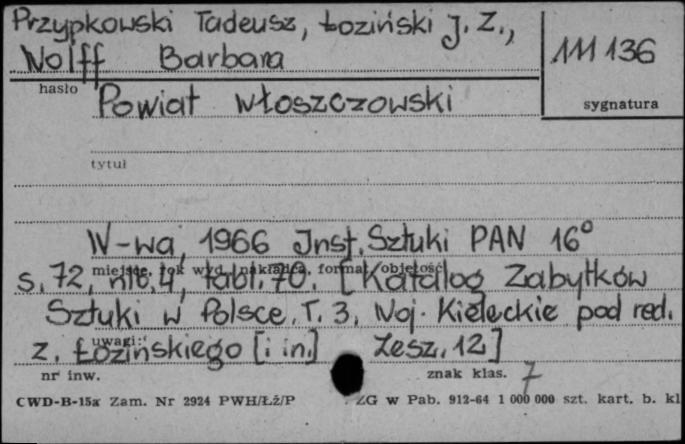 Przypkowski Tadeusz, Łoziński J. Z.,
Wolff Barbara
111 136
hasło
Powiat włoszczowski
sygnatura
tytuł
W-wa, 1966 Inst. Sztuki PAN 16°
miejsce, rok wyd., nakładca, format, objętość
s. 72, nlb. 4, tabl. 70. [Katalog Zabytków
Sztuki w Polsce, T. 3, Woj. Kieleckie pod red.
uwagi:
z. Łozińskiego [i in.] Zesz. 12]
nr inw.
znak klas. 7
CWD-B-15a Zam. Nr 2924 PWH/Łź/P ZG w Pab. 912-64 1 000 000 szt. kart. b. kl